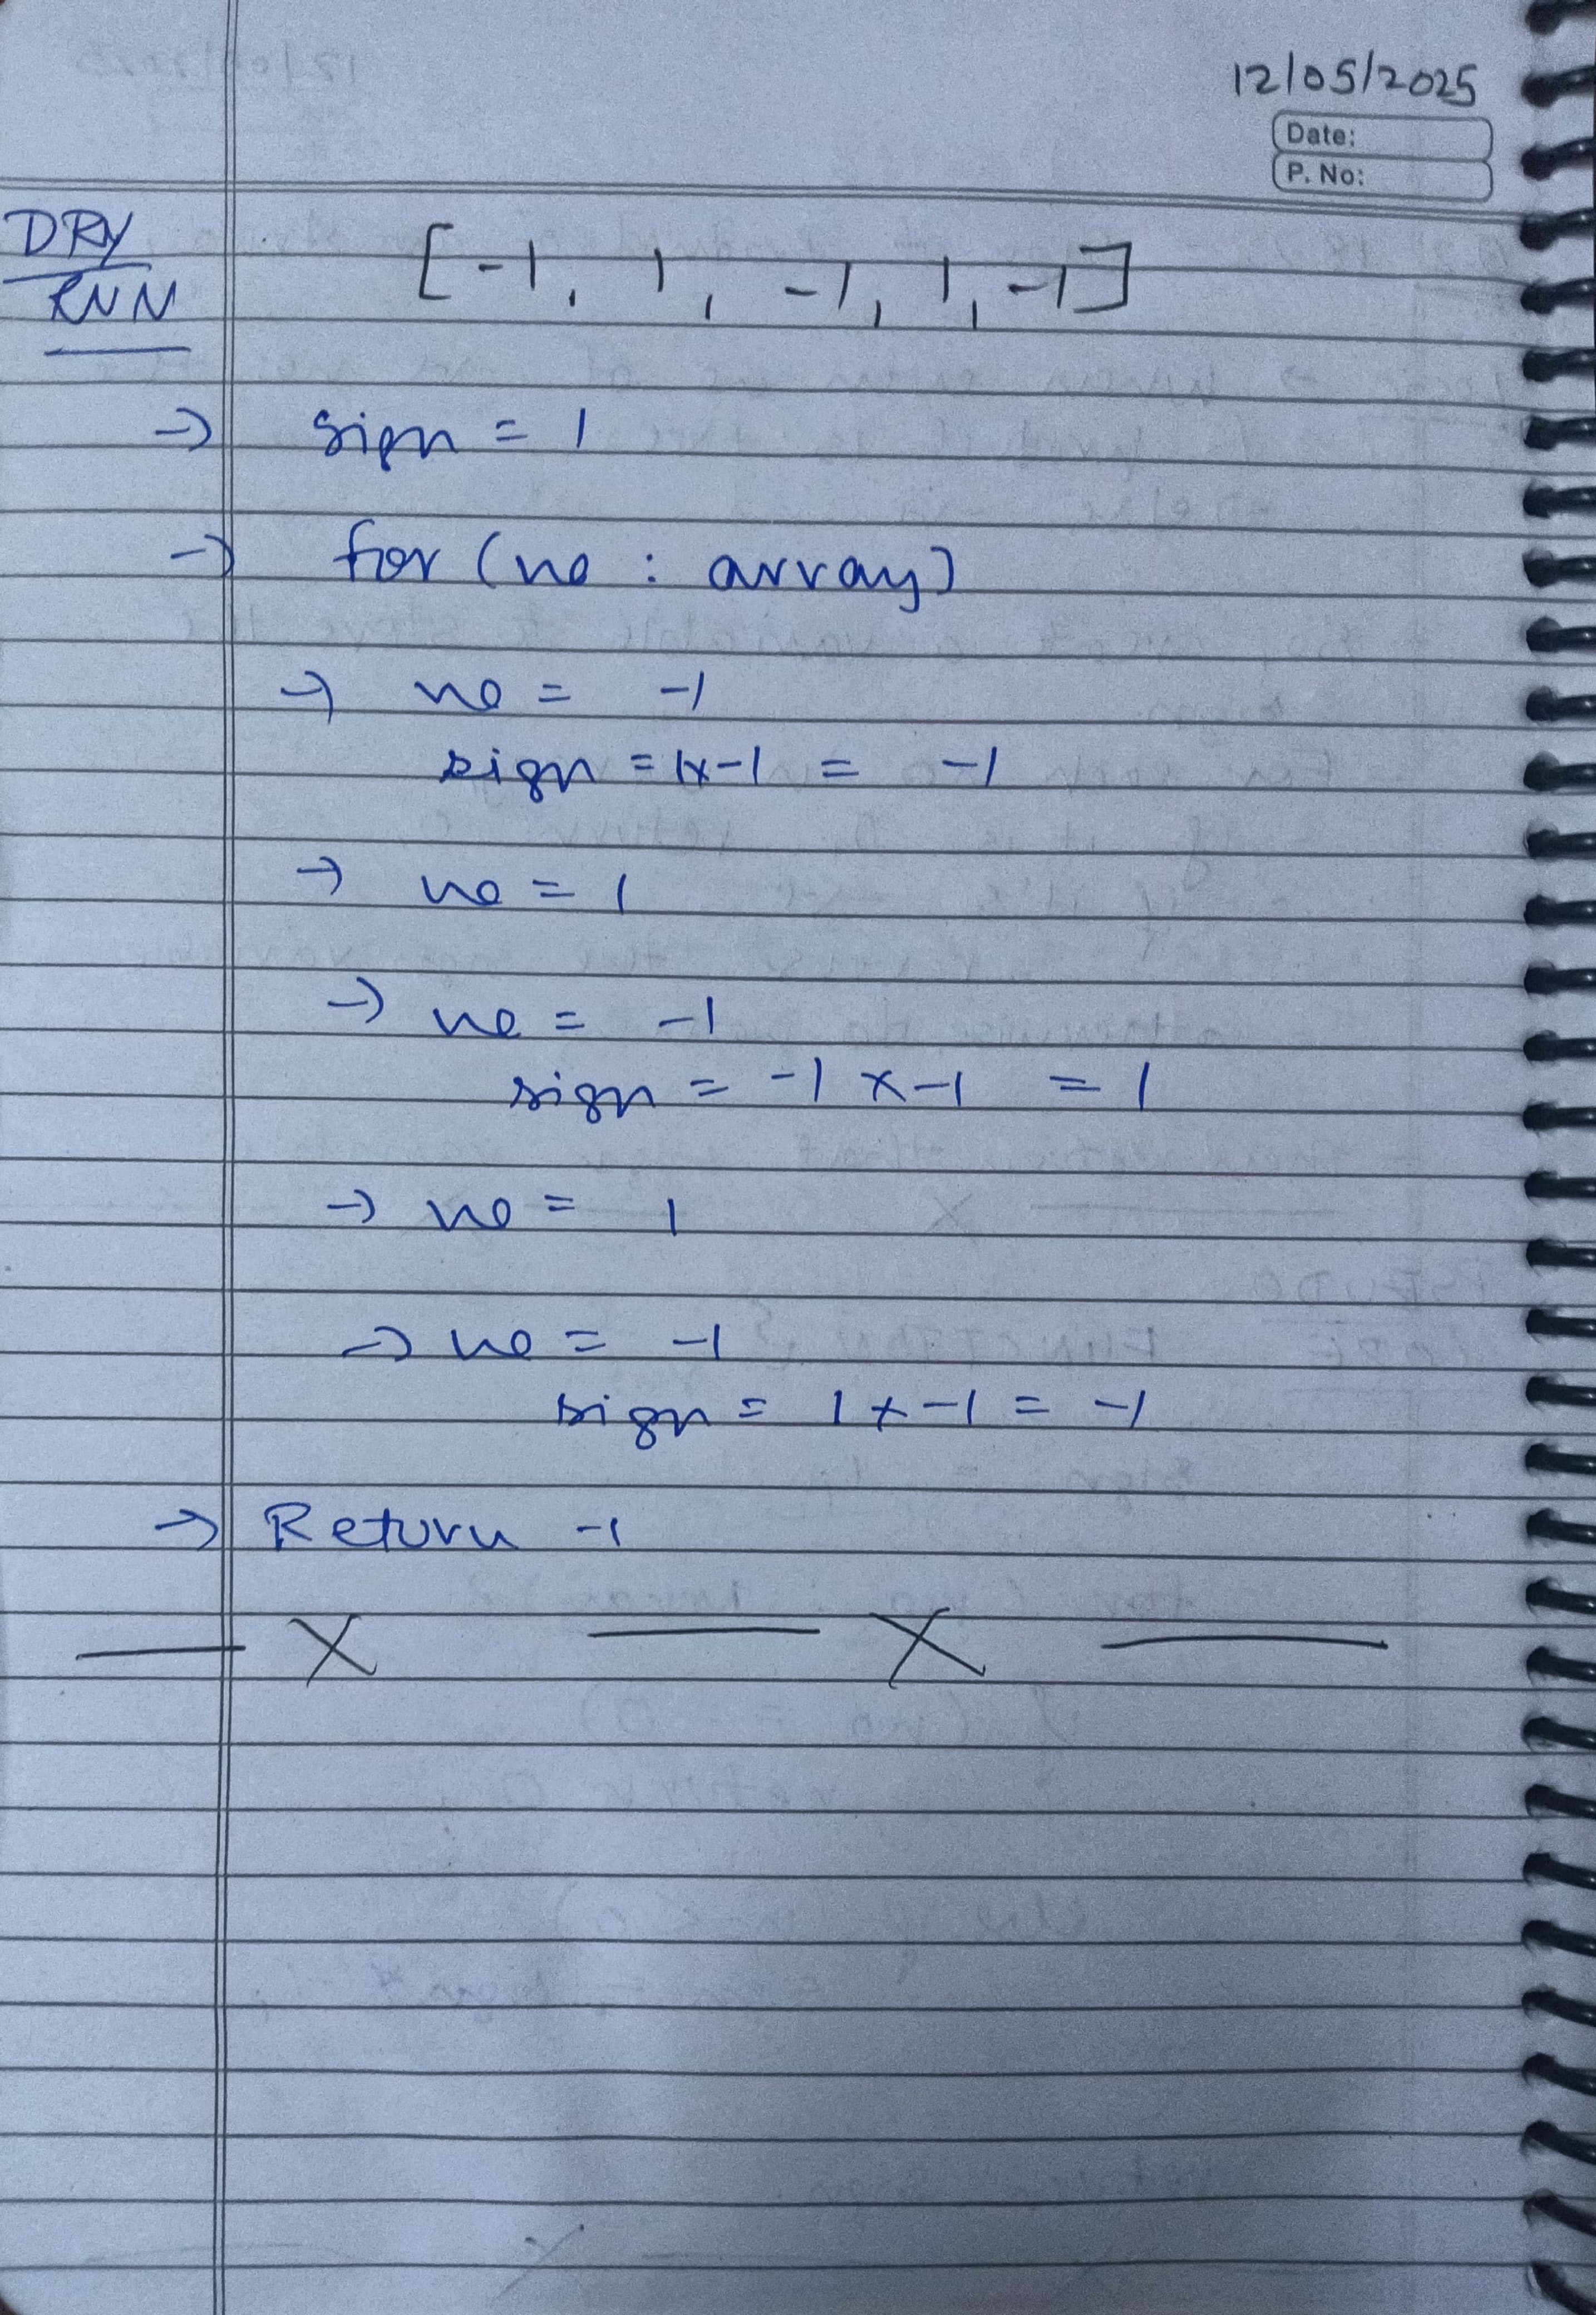 12/05/2025
Date:
P. No:
DRY
RUN
[-1, 1, -1, 1, -1]
→ sign = 1
→ for (no : array)
→ no = -1
sign = 1x-1 = -1
→ no = 1
→ no = -1
sign = -1 x -1 = 1
→ no = 1
→ no = -1
sign = 1 x -1 = -1
→ Return -1
— X — X —